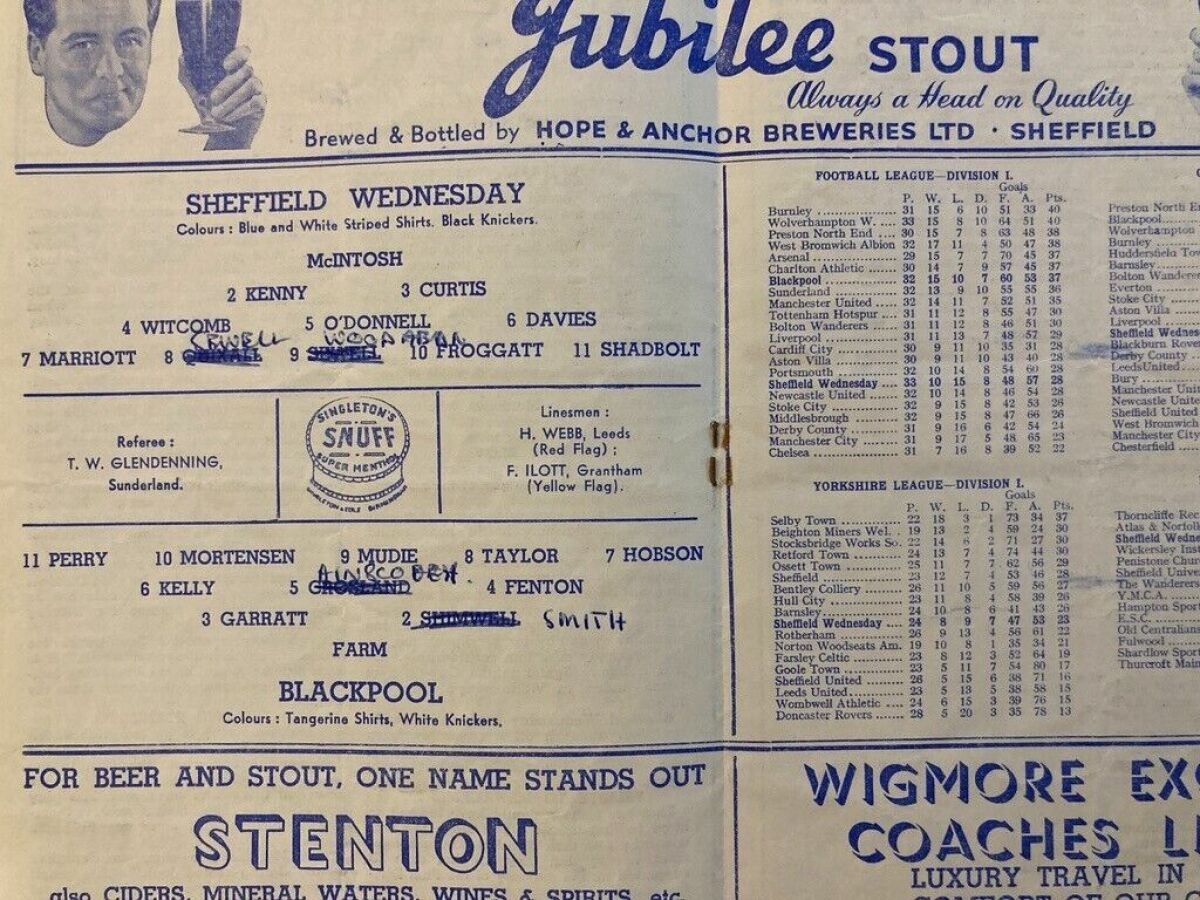 Jubilee STOUT
Always a Head on Quality
Brewed & Bottled by HOPE & ANCHOR BREWERIES LTD · SHEFFIELD
SHEFFIELD WEDNESDAY
Colours : Blue and White Striped Shirts. Black Knickers.
McINTOSH
2 KENNY 3 CURTIS
4 WITCOMB 5 O'DONNELL 6 DAVIES
SEWELL
7 MARRIOTT 8 QUIXALL 9 SEWELL 10 FROGGATT 11 SHADBOLT
Referee :
T. W. GLENDENNING,
Sunderland.
SINGLETON'S
SNUFF
SUPER MENTHOL
Linesmen :
H. WEBB, Leeds
(Red Flag) ;
F. ILOTT, Grantham
(Yellow Flag).
11 PERRY 10 MORTENSEN 9 MUDIE 8 TAYLOR 7 HOBSON
6 KELLY 5 CROSLAND 4 FENTON
3 GARRATT 2 SHIMWELL SMITH
FARM
BLACKPOOL
Colours : Tangerine Shirts, White Knickers.
FOOTBALL LEAGUE—DIVISION I.
Goals
P. W. L. D. F. A. Pts.
Burnley 31 15 6 10 51 33 40
Wolverhampton W. 33 15 8 10 64 51 40
Preston North End 30 15 7 8 63 48 38
West Bromwich Albion 32 17 11 4 50 47 38
Arsenal 29 15 7 7 70 45 37
Charlton Athletic 30 14 7 9 57 45 37
Blackpool 32 15 10 7 60 53 37
Sunderland 32 13 9 10 55 55 36
Manchester United 32 14 11 7 52 51 35
Tottenham Hotspur 31 11 12 8 55 47 30
Bolton Wanderers 31 11 12 8 46 51 30
Liverpool 31 11 13 7 48 57 29
Cardiff City 30 9 11 10 35 31 28
Aston Villa 30 9 11 10 43 40 28
Portsmouth 32 10 14 8 54 60 28
Sheffield Wednesday 33 10 15 8 48 57 28
Newcastle United 32 10 14 8 46 54 28
Stoke City 32 9 15 8 42 53 26
Middlesbrough 32 9 15 8 47 66 26
Derby County 31 9 16 6 42 54 24
Manchester City 31 9 17 5 48 65 23
Chelsea 31 7 16 8 39 52 22
Preston North
Blackpool
Wolverhampton
Burnley
Huddersfield
Barnsley
Bolton
Everton
Stoke City
Aston Villa
Liverpool
Sheffield
Blackburn
Derby County
LeedsUnited
Bury
Manchester
Newcastle
Sheffield United
West Bromwich
Manchester City
Chesterfield
YORKSHIRE LEAGUE—DIVISION I.
Goals
P. W. L. D. F. A. Pts.
Selby Town 22 18 3 1 73 34 37
Beighton Miners Wel. 19 13 2 4 59 24 30
Stocksbridge Works So. 22 14 6 2 71 27 30
Retford Town 24 13 7 4 74 44 30
Ossett Town 25 11 7 7 62 56 29
Sheffield 23 12 7 4 53 46 28
Bentley Colliery 26 11 10 5 59 56 27
Hull City 23 11 8 4 58 39 26
Barnsley 24 10 8 6 41 43 26
Sheffield Wednesday 24 8 9 7 47 53 23
Rotherham 26 9 13 4 56 61 22
Norton Woodseats Am. 19 10 8 1 35 34 21
Farsley Celtic 23 8 12 3 52 64 19
Goole Town 23 5 11 7 54 80 17
Sheffield United 26 5 15 6 38 71 16
Leeds United 23 5 13 5 38 58 15
Wombwell Athletic 24 6 15 3 39 76 15
Doncaster Rovers 28 5 20 3 35 78 13
Thorncliffe Rec
Atlas &
Sheffield
Wickersley
Penistone
Sheffield
The Wanderers
Y.M.C.A.
Hampton
E.S.C.
Old
Fulwood
Shardlow
Thurcroft
FOR BEER AND STOUT, ONE NAME STANDS OUT
STENTON
also CIDERS, MINERAL WATERS, WINES & SPIRITS, etc.
WIGMORE EX
COACHES L
LUXURY TRAVEL IN